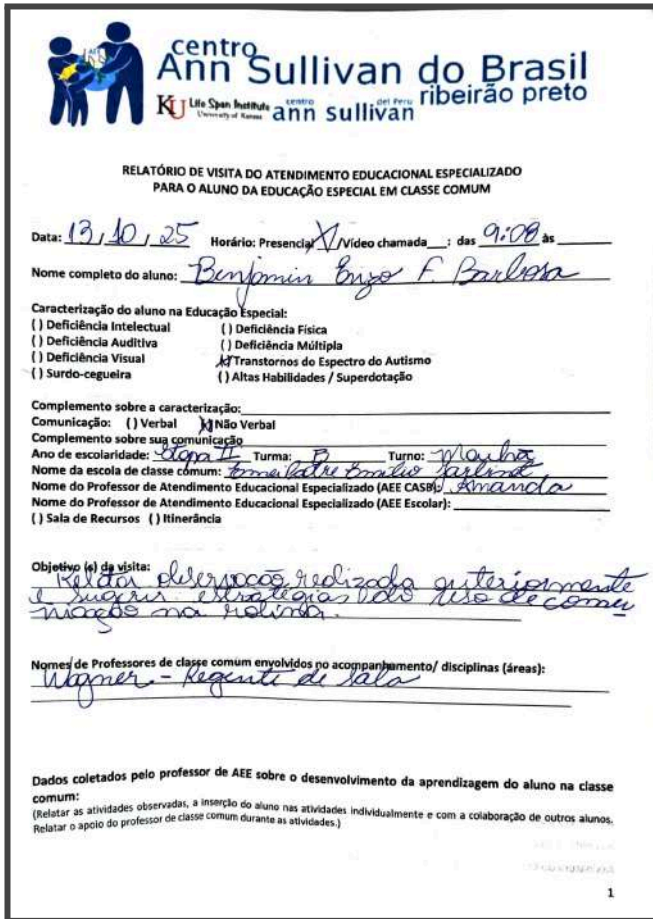 AEE
centro
Ann Sullivan do Brasil
ribeirão preto
KU Life Span Institute
University of Kansas
centro ann sullivan del Peru
RELATÓRIO DE VISITA DO ATENDIMENTO EDUCACIONAL ESPECIALIZADO
PARA O ALUNO DA EDUCAÇÃO ESPECIAL EM CLASSE COMUM
Data: 13/10/25 Horário: Presencial X /Vídeo chamada___: das 9:08 às
Nome completo do aluno: Benjamin Enzo F. Barbosa
Caracterização do aluno na Educação Especial:
( ) Deficiência Intelectual ( ) Deficiência Física
( ) Deficiência Auditiva ( ) Deficiência Múltipla
( ) Deficiência Visual (X) Transtornos do Espectro do Autismo
( ) Surdo-cegueira ( ) Altas Habilidades / Superdotação
Complemento sobre a caracterização:
Comunicação: ( ) Verbal (X) Não Verbal
Complemento sobre sua comunicação
Ano de escolaridade: Etapa II Turma: B Turno: Manhã
Nome da escola de classe comum: Emei Padre Emílio
Nome do Professor de Atendimento Educacional Especializado (AEE CASB): Amanda
Nome do Professor de Atendimento Educacional Especializado (AEE Escolar):
( ) Sala de Recursos ( ) Itinerância
Objetivo (s) da visita:
Relatar observação realizada anteriormente
e sugerir estratégias do uso de comu
nicação na rotina.
Nomes de Professores de classe comum envolvidos no acompanhamento/ disciplinas (áreas):
Wagner - Regente de sala
Dados coletados pelo professor de AEE sobre o desenvolvimento da aprendizagem do aluno na classe
comum:
(Relatar as atividades observadas, a inserção do aluno nas atividades individualmente e com a colaboração de outros alunos.
Relatar o apoio do professor de classe comum durante as atividades.)
1